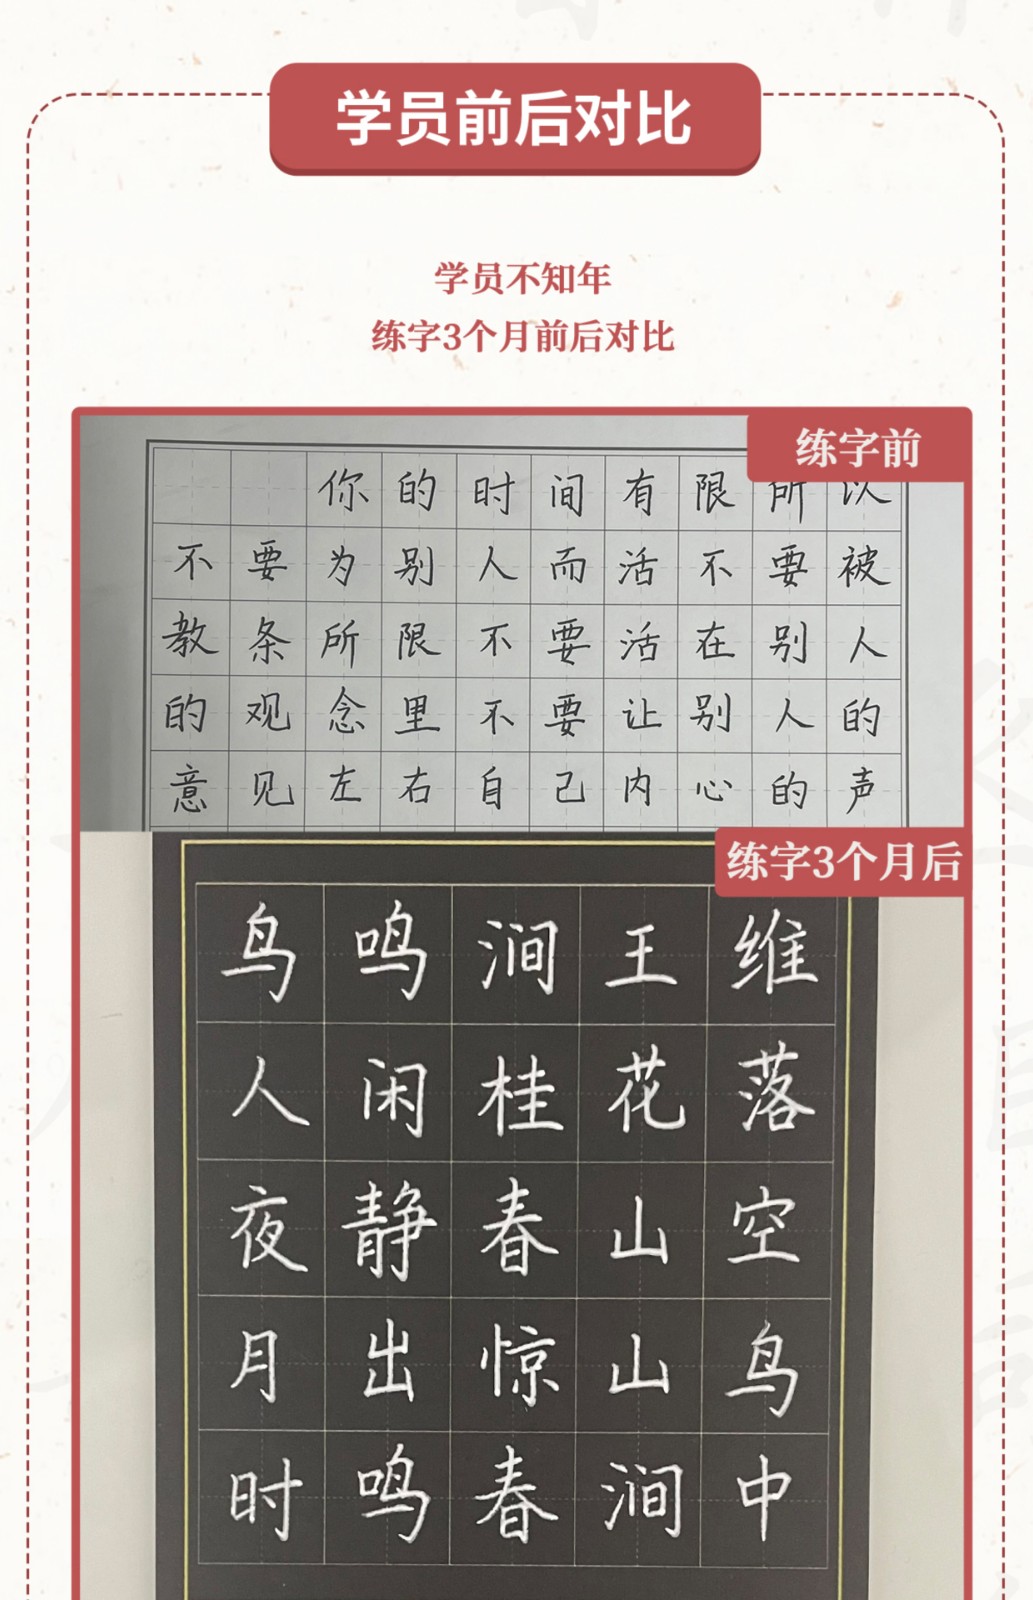 学员前后对比
学员不知年
练字3个月前后对比
练字前
你的时间有限所以
不要为别人而活不要被
教条所限不要活在别人
的观念里不要让别人的
意见左右自己内心的声
练字3个月后
鸟鸣涧王维
人闲桂花落
夜静春山空
月出惊山鸟
时鸣春涧中